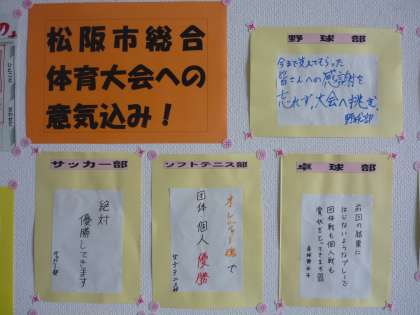 松阪市総合
体育大会への
意気込み！
野球部
今まで支えてもらった
皆さんへの感謝を
忘れず、大会へ挑む。
野球部
サッカー部
絶対
優勝してきます
ソフトテニス部
オレンジ魂で
団体 個人 優勝
卓球部
前回の結果に
団体戦も個人戦も